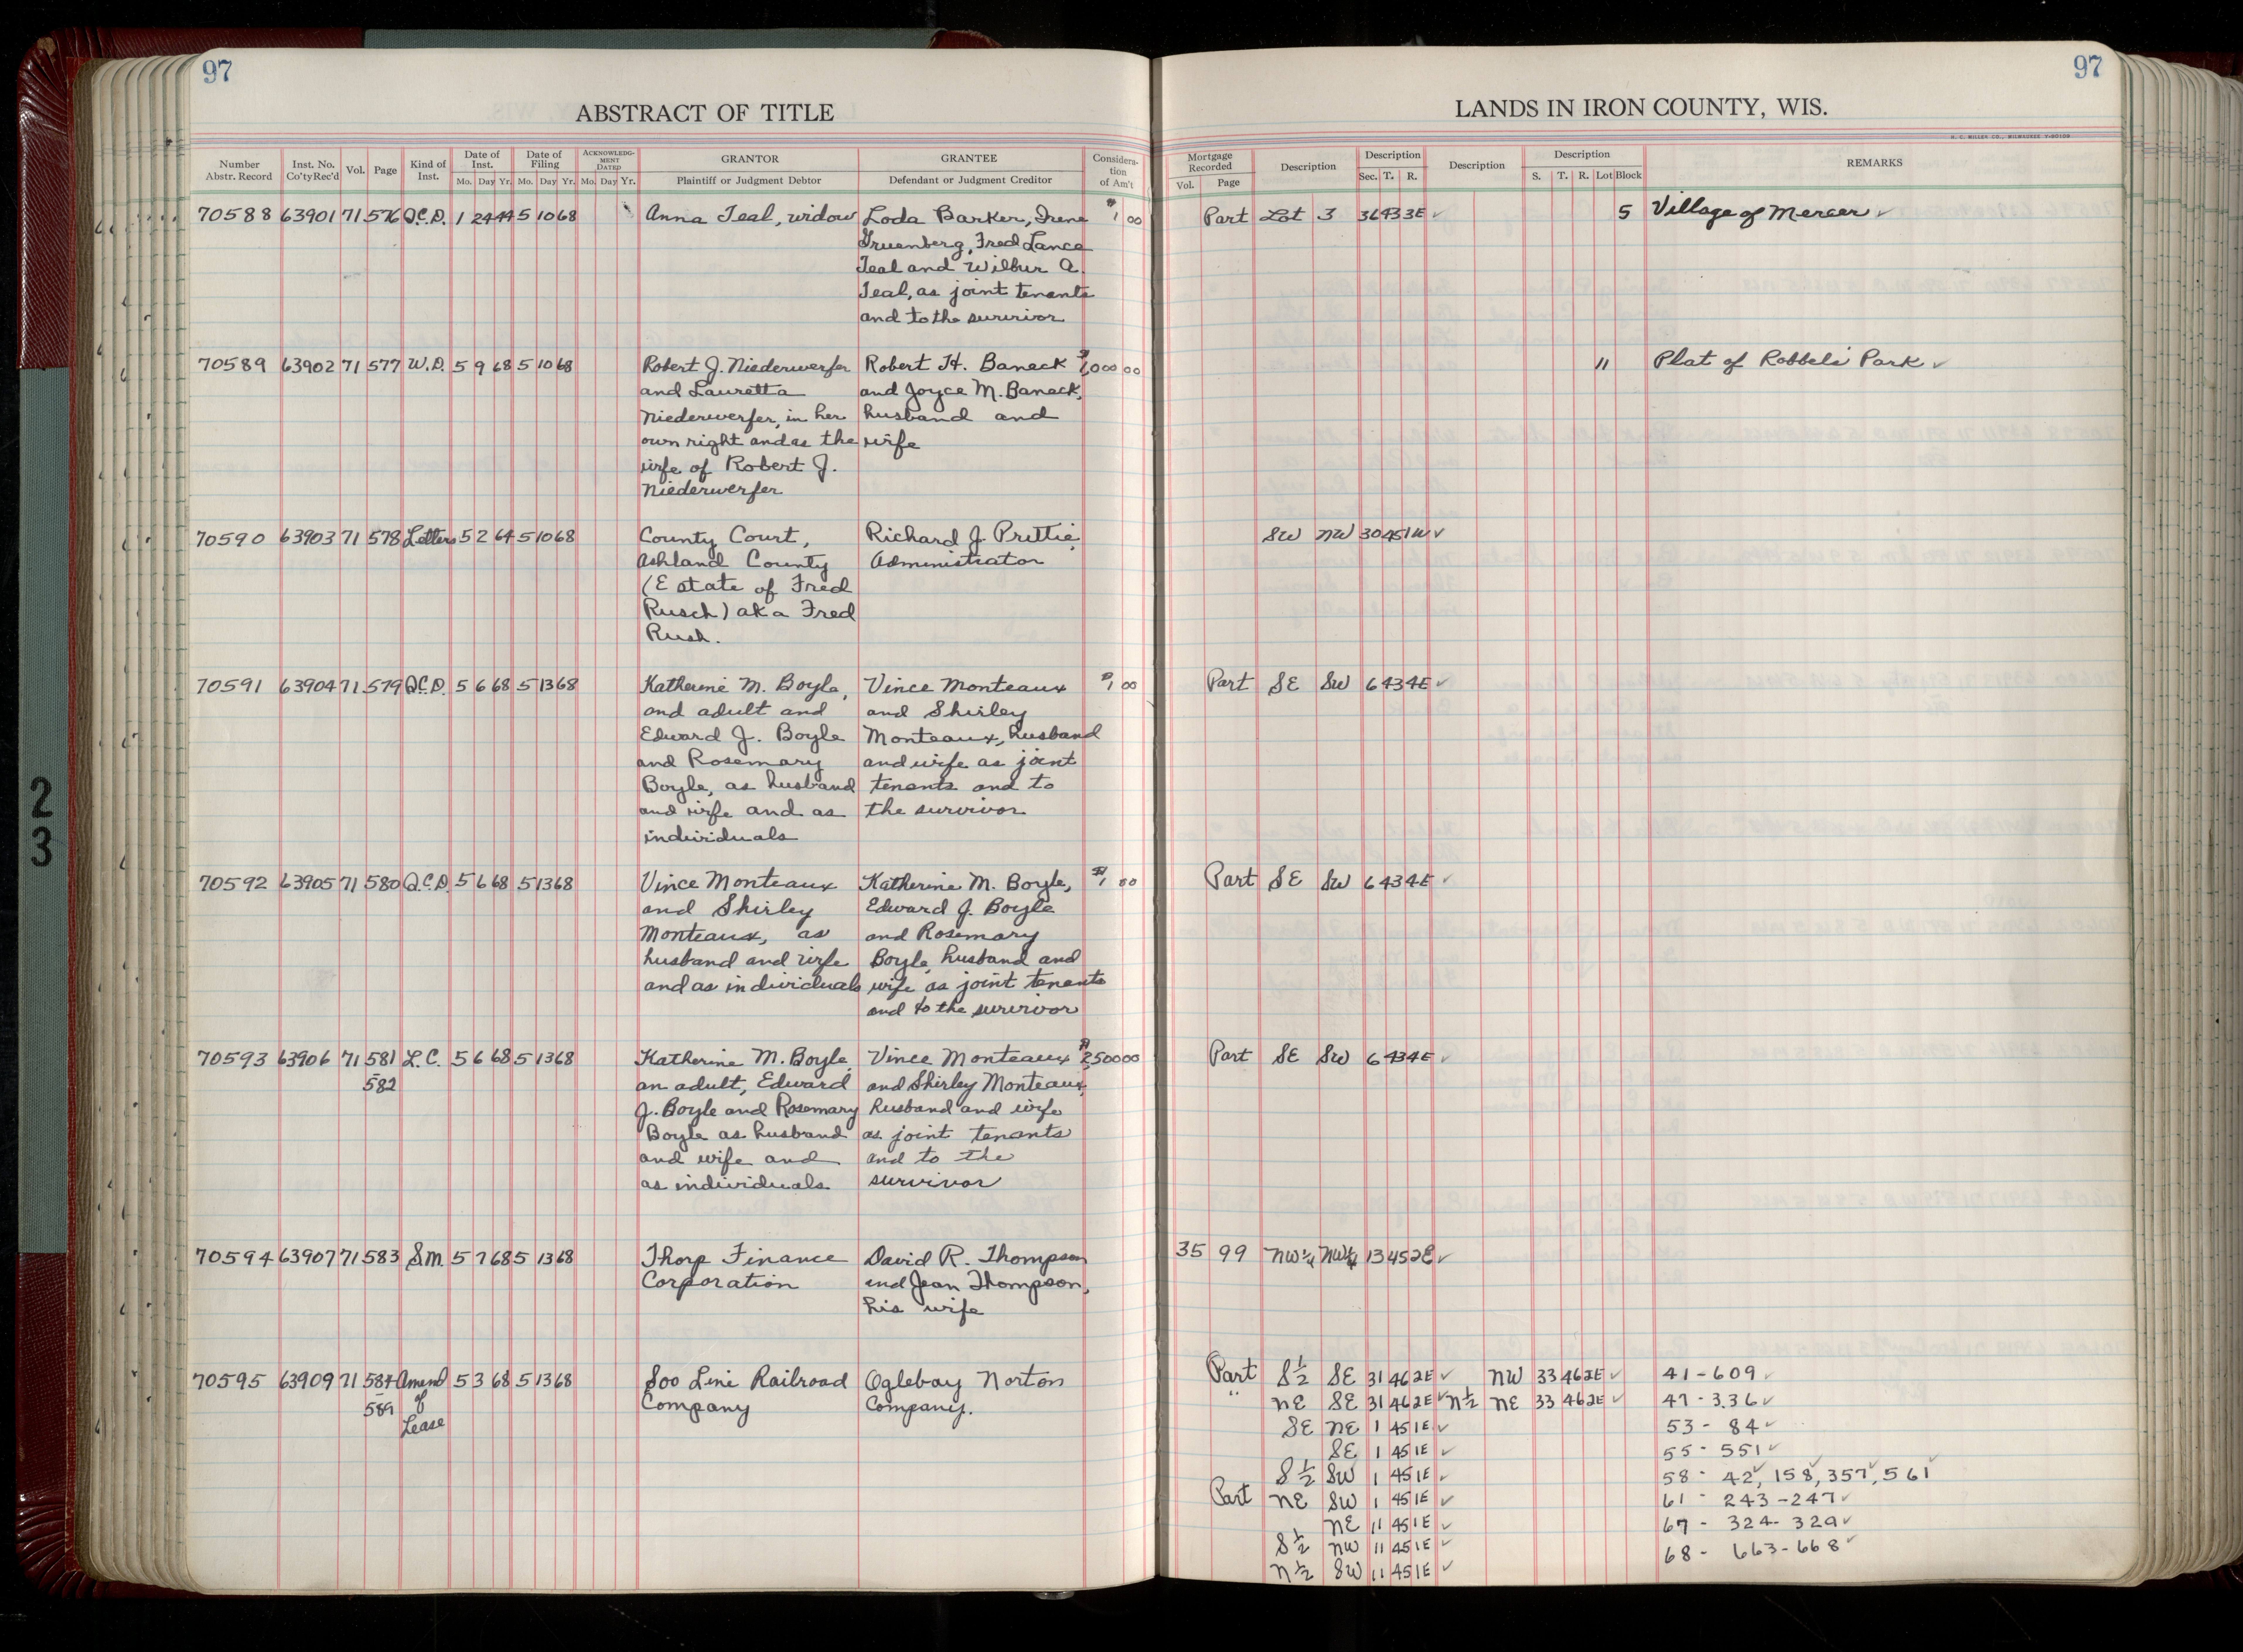 97
ABSTRACT OF TITLE
Number Abstr. Record | Inst. No. Co'ty Rec'd | Vol. | Page | Kind of Inst. | Date of Inst. Mo. Day Yr. | Date of Filing Mo. Day Yr. | ACKNOWLEDGMENT DATED Mo. Day Yr. | GRANTOR Plaintiff or Judgment Debtor | GRANTEE Defendant or Judgment Creditor | Consideration of Am't
70588 63901 71 576 Q.C.D. 1 24 44 5 10 68 Anna Teal, widow Loda Barker, Irene $1 00
Gruenberg, Fred Lance
Teal and Wilbur A.
Teal, as joint tenants
and to the survivor
70589 63902 71 577 W.D. 5 9 68 5 10 68 Robert J. Niederwerfer Robert H. Baneck $1,000 00
and Lauretta and Joyce M. Baneck,
Niederwerfer, in her husband and
own right and as the wife
wife of Robert J.
Niederwerfer
70590 63903 71 578 Letters 5 2 64 5 10 68 County Court, Richard J. Prittie,
Ashland County Administrator
(Estate of Fred
Rusch) aka Fred
Rush.
70591 63904 71 579 Q.C.D. 5 6 68 5 13 68 Katherine M. Boyle, Vince Monteaux $1 00
and adult and and Shirley
Edward J. Boyle Monteaux, husband
and Rosemary and wife as joint
Boyle, as husband tenants and to
and wife and as the survivor
individuals
70592 63905 71 580 Q.C.D. 5 6 68 5 13 68 Vince Monteaux Katherine M. Boyle, $1 00
and Shirley Edward J. Boyle
Monteaux, as and Rosemary
husband and wife Boyle, husband and
and as individuals wife as joint tenants
and to the survivor
70593 63906 71 581 L.C. 5 6 68 5 13 68 Katherine M. Boyle, Vince Monteaux $2,500 00
-582 an adult, Edward and Shirley Monteaux,
J. Boyle and Rosemary husband and wife
Boyle as husband as joint tenants
and wife and and to the
as individuals survivor
70594 63907 71 583 S.M. 5 7 68 5 13 68 Thorp Finance David R. Thompson
Corporation and Jean Thompson,
his wife
70595 63909 71 584 Amend 5 3 68 5 13 68 Soo Line Railroad Oglebay Norton
-589 of Company Company.
Lease
97
LANDS IN IRON COUNTY, WIS.
H. C. MILLER CO., MILWAUKEE
Mortgage Recorded Vol. Page | Description | Description Sec. T. R. | Description | Description S. T. R. Lot Block | REMARKS
Part Lot 3 36 43 3E ✓ 5 Village of Mercer ✓
11 Plat of Robbels Park ✓
SW NW 30 45 1W ✓
Part SE SW 6 43 4E ✓
Part SE SW 6 43 4E ✓
Part SE SW 6 43 4E ✓
35 99 NW¼ NW¼ 13 45 2E ✓
Part S½ SE 31 46 2E ✓ NW 33 46 2E ✓ 41-609 ✓
" NE SE 31 46 2E ✓ N½ NE 33 46 2E ✓ 47-336 ✓
SE NE 1 45 1E ✓ 53- 84 ✓
SE 1 45 1E ✓ 55- 551 ✓
S½ SW 1 45 1E ✓ 58- 42, 158, 357, 561
Part NE SW 1 45 1E ✓ 61- 243-247 ✓
NE 11 45 1E ✓ 67- 324-329 ✓
S½ NW 11 45 1E ✓ 68- 663-668 ✓
N½ SW 11 45 1E ✓
2
3